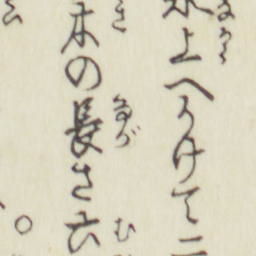 水上へうけて二
木の長さ六